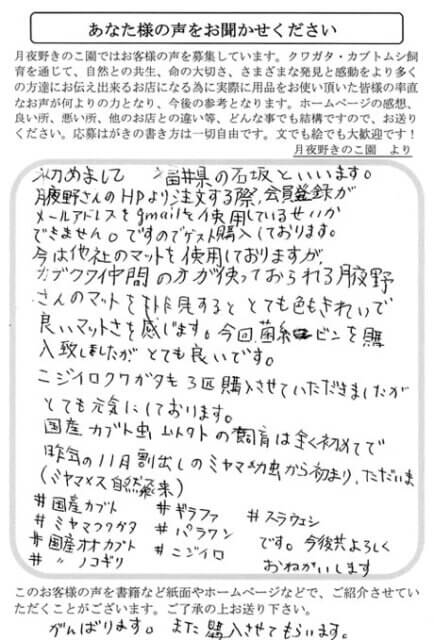 あなた様の声をお聞かせください
月夜野きのこ園ではお客様の声を募集しています。クワガタ・カブトムシ飼
育を通じて、自然との共生、命の大切さ、さまざまな発見と感動をより多く
の方達にお伝え出来るお店になる為に実際に用品をお使い頂いた皆様の率直
なお声が何よりの力となり、今後の参考となります。ホームページの感想、
良い所、悪い所、他のお店との違い等、どんな事でも結構ですので、お送り
ください。応募はがきの書き方は一切自由です。文でも絵でも大歓迎です！
月夜野きのこ園 より
初めまして 福井県の石坂といいます。
月夜野さんのHPより注文する際、会員登録が
メールアドレスをgmailを使用しているせいか
できません。ですのでゲスト購入しております。
今は他社のマットを使用しておりますが、
カブクワ仲間の方が使っておられる月夜野
さんのマットを拝見するととても色もきれいで
良いマットさを感じます。今回菌糸ビンを購
入致しましたがとても良いです。
ニジイロクワガタも3匹購入させていただきましたが
とても元気にしております。
国産カブト虫 の飼育は全く初めてで
昨年の11月割出しのミヤマ幼虫から初まり、ただいま
(ミヤマメス自然 来)
#国産カブト #ギラファ #スラウェシ
#ミヤマクワガタ #パラワン です。今後共よろしく
#国産オオカブト #ニジイロ おねがいします
# 〃 ノコギリ
このお客様の声を書籍など紙面やホームページなどで、ご紹介させてい
ただくことがございます。ご了承の上お送り下さい。
がんばります。また購入させてもらいます。